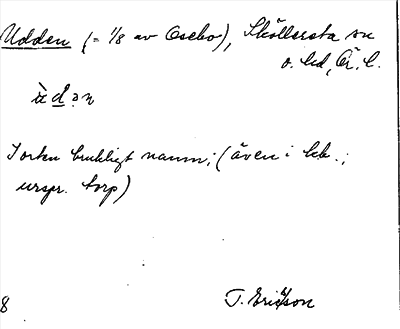 Udden (= 1/8 av Osebo), Sköllersta sn
o. hd, Ör. l.
ùdən
I orten brukligt namn; (även i kb.;
urspr. torp)
8 T. Ericsson